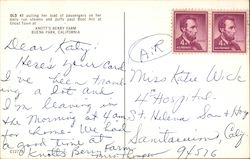 OLD 41 pulling her load of passengers on her
daily run steams and puffs past Boot Hill at
Ghost Town at
KNOTT'S BERRY FARM
BUENA PARK, CALIFORNIA
Dear Katy:
Here's your card.
I've been travel
ing a lot and
I'm leaving in
the Morning at 4 am
for home. We had
a good time at
Knott's Berry Farm
Miss Katie Wick
4th Hospital
St. Helena San + Hosp
Sanitarium, Calif
94576
4¢
4¢